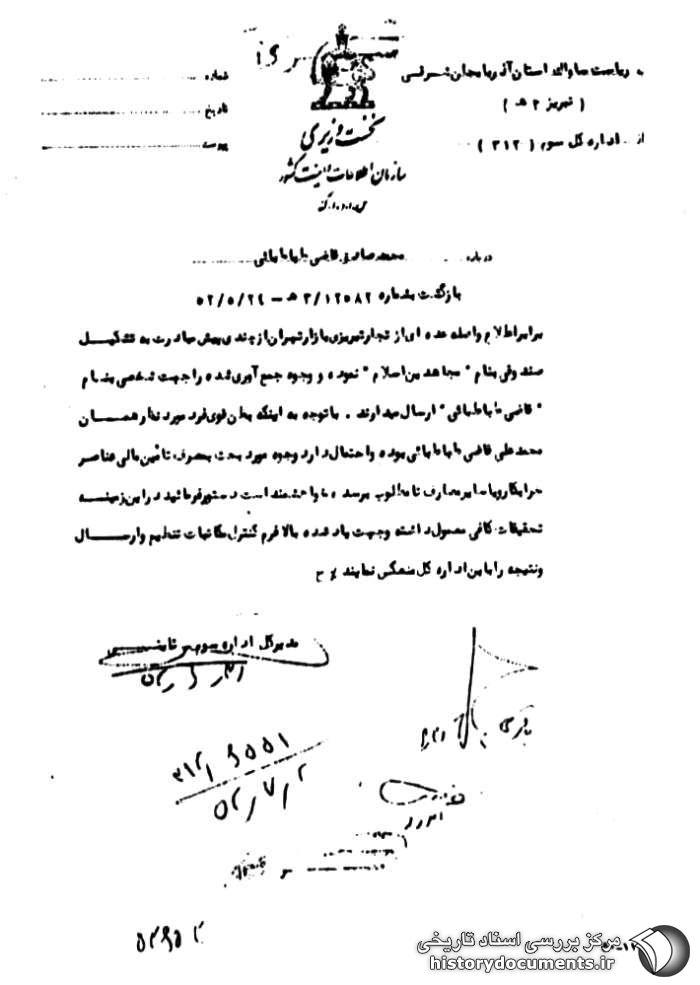 به ریاست ساواک استان آذربایجان شرقی
( تبریز ۲ هـ )
از اداره کل سوم ( ۳۱۲ )
شماره
تاریخ
پیوست
نخست وزیری
سازمان اطلاعات و امنیت کشور
س.ا.و.ا.ک
درباره محمد صادق قاضی طباطبائی
بازگشت بشماره ۳/۱۲۵۸۲ هـ - ۵۲/۵/۲۴
برابر اطلاع واصله عده ای از تجار تبریزی بازار تهران از چندی پیش مبادرت به تشکیل
صندوقی بنام " مجاهدین اسلام " نموده و وجوه جمع آوری شده را جهت شخصی بنام
" قاضی طباطبائی " ارسال میدارند . با توجه به اینکه بظن قوی فرد مورد نظر همان
محمدعلی قاضی طباطبائی بوده و احتمال دارد وجوه مورد بحث بمصرف تامین مالی عناصر
خرابکار و یا سایر مصارف نامطلوب برسد خواهشمند است دستور فرمائید در این زمینه
تحقیقات کافی معمول داشته و جهت یاد شده بالا فرم کنترل مکاتبات تنظیم و ارسال
و نتیجه را باین اداره کل منعکس نمایند
مدیرکل اداره سوم ثابتی
۳۱۲/۶۵۵۱
۵۲/۷/۲
مرکز بررسی اسناد تاریخی
historydocuments.ir